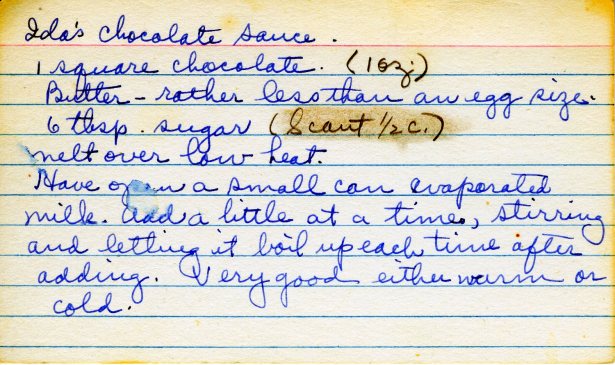 Ida's chocolate sauce.
1 square chocolate. (1 oz.)
Butter - rather less than an egg size.
6 tbsp. sugar (Scant 1/2 c.)
melt over low heat.
Have open a small can evaporated
milk. Add a little at a time, stirring
and letting it boil up each time after
adding. Very good either warm or
cold.